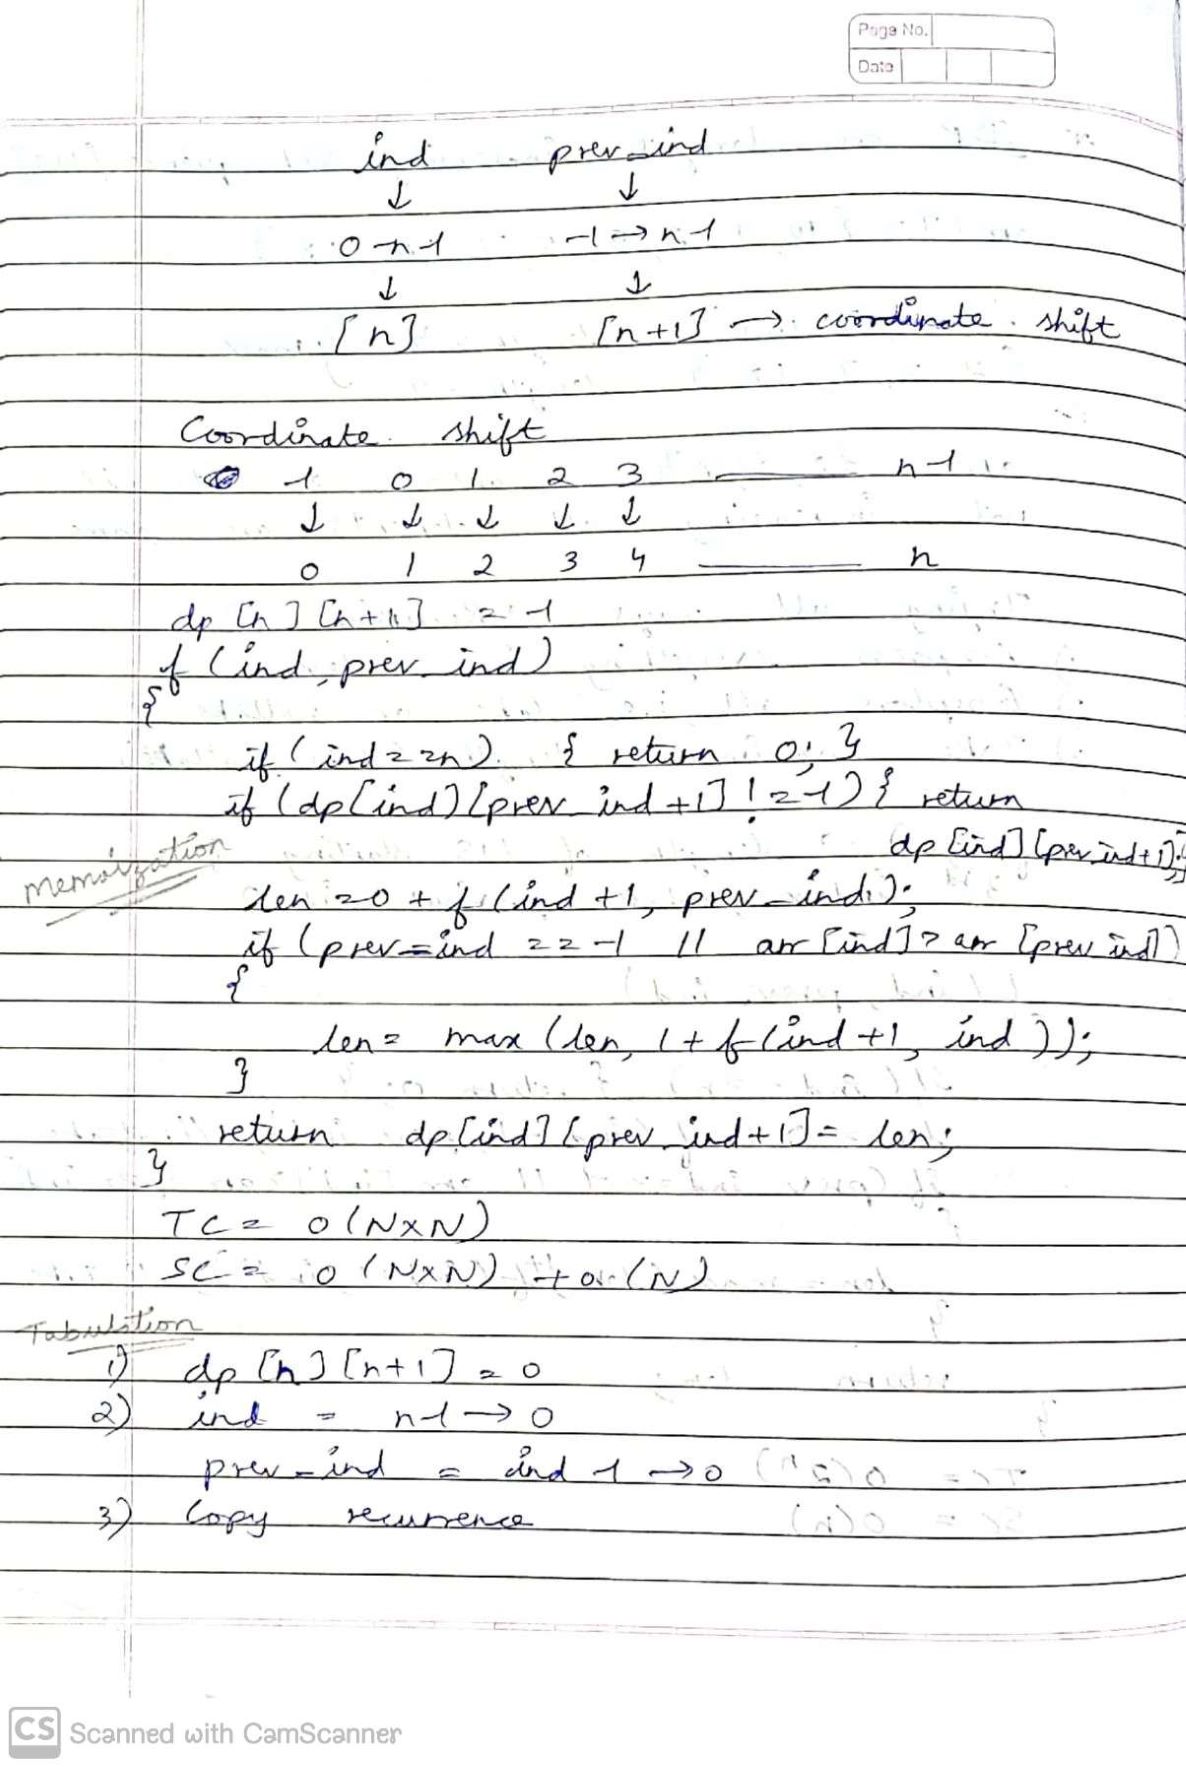 Page No.
Date
ind prev_ind
↓ ↓
0-n-1 -1→n-1
↓ ↓
[n] [n+1] → coordinate shift
Coordinate shift
-1 0 1 2 3 —— n-1
↓ ↓ ↓ ↓ ↓
0 1 2 3 4 —— n
dp [n][n+1] = -1
f (ind, prev_ind)
{
if (ind == n) { return 0; }
if (dp[ind][prev_ind+1] != -1) { return
dp[ind][prev_ind+1];}
Memoization
len = 0 + f(ind+1, prev_ind);
if (prev_ind == -1 || arr[ind] > arr[prev_ind])
{
len = max (len, 1 + f(ind+1, ind));
}
return dp[ind][prev_ind+1] = len;
}
TC = O(N×N)
SC = O(N×N) + O(N)
Tabulation
1) dp[n][n+1] = 0
2) ind = n-1 → 0
prev_ind = ind-1 → 0
3) Copy recurrence
CS Scanned with CamScanner